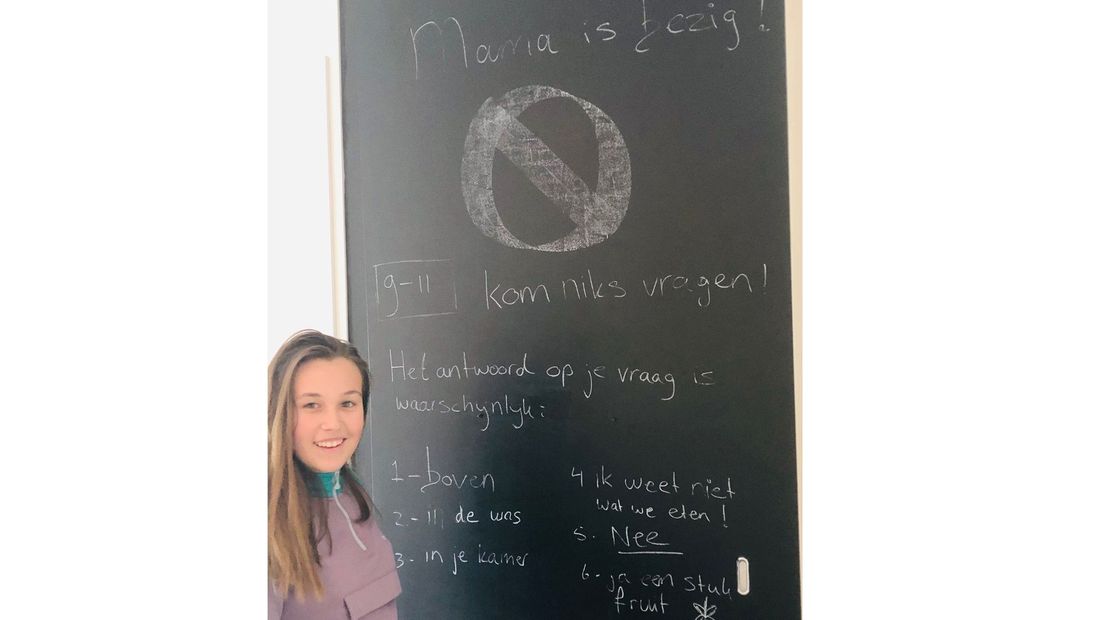 Mama is bezig!
9-11 kom niks vragen!
Het antwoord op je vraag is
waarschijnlijk:
1 - boven
2. - in de was
3. - in je kamer
4 ik weet niet
wat we eten!
5. Nee
6 - ja een stuk
fruit